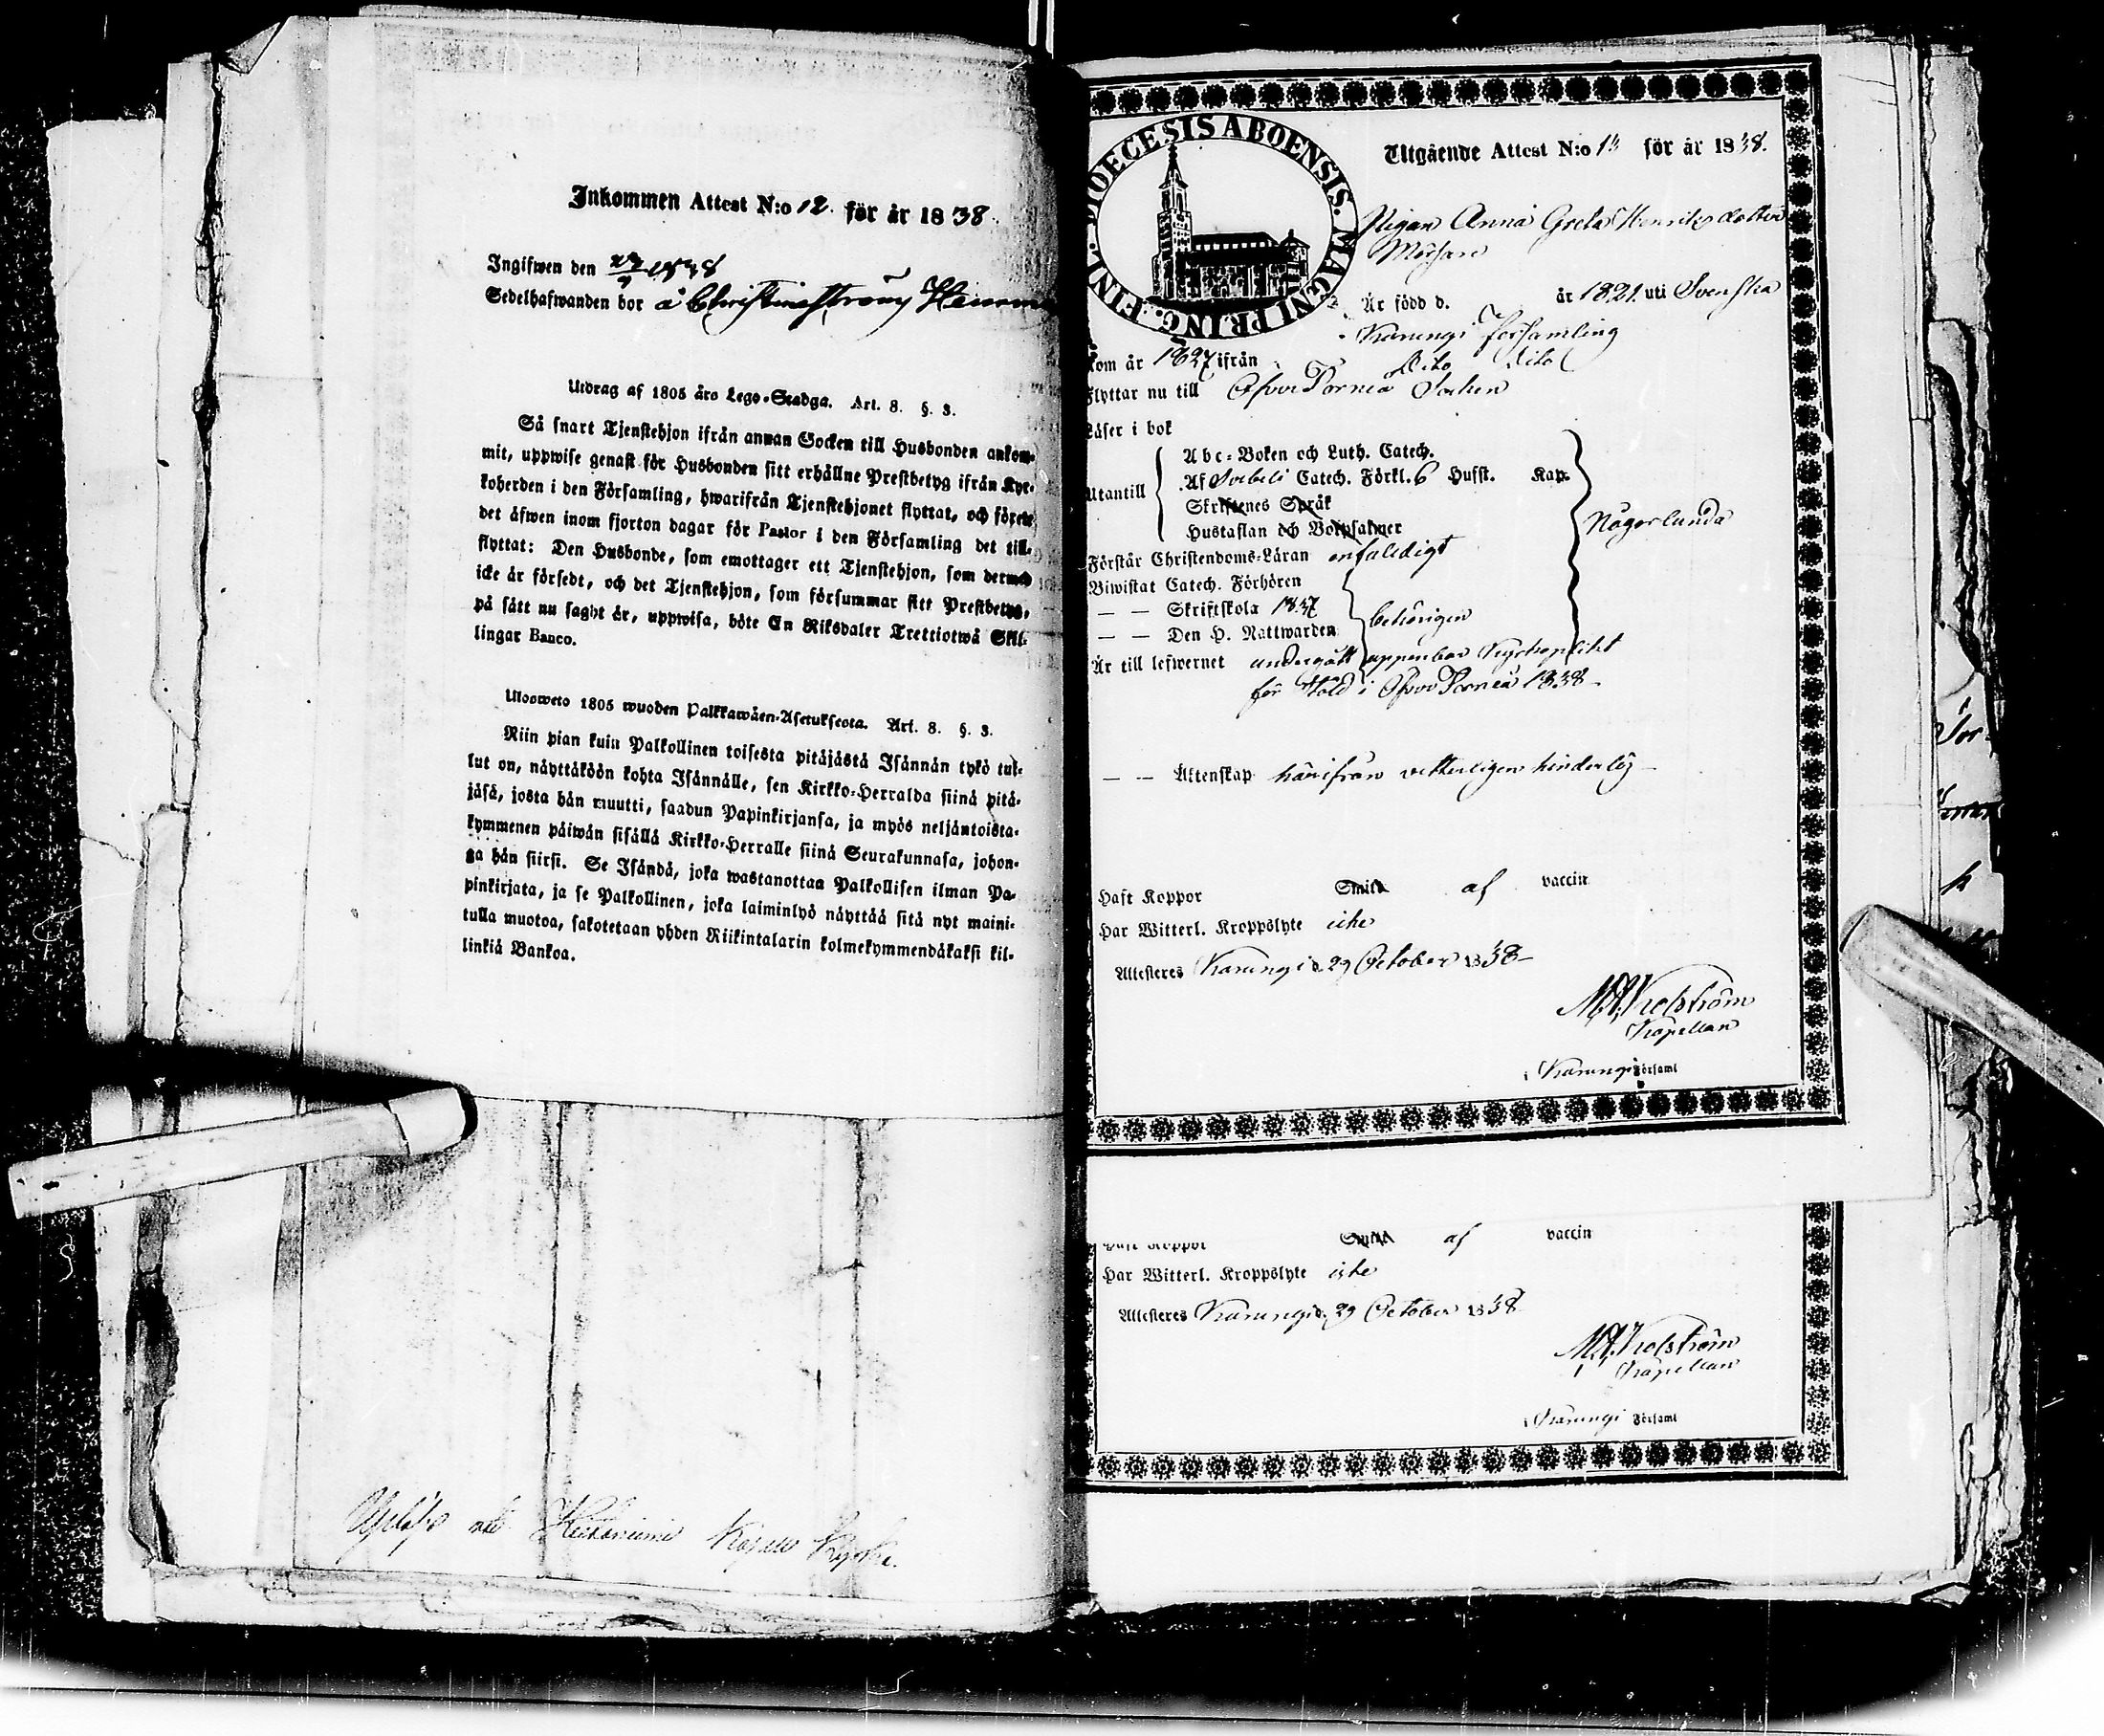 Inkommen Attest N:o 12. för år 1838.
Ingifwen den 1838
Sedelhafwanden bor å Christineströms
Utdrag af 1805 års Lego-Stadga. Art. 8. §. 3.
Så snart Tjenstehjon ifrån annan Socken till Husbonden ankom-
mit, uppwise genast för Husbonden sitt erhållne Prestbetyg ifrån Kyr-
koherden i den Församling, hwarifrån Tjenstehjonet flyttat, och förete
det äfwen inom fjorton dagar för Pastor i den Församling det till-
flyttat: Den Husbonde, som emottager ett Tjenstehjon, som dermed
icke är försedt, och det Tjenstehjon, som försummar sitt Prestbetyg,
på sätt nu sagdt är, uppwisa, böte En Riksdaler Trettiotwå Skil-
lingar Banco.
Ulosweto 1805 wuoden Palkkawäen-Asetuksesta. Art. 8. §. 3.
Niin pian kuin Palkollinen toisesta pitäjästä Isännän tykö tul-
lut on, näyttäköön kohta Isännälle, sen Kirkko-Herralda siinä pitä-
jäsä, josta hän muutti, saadun Papinkirjansa, ja myös neljäntoista-
kymmenen päiwän sisällä Kirkko-Herralle siinä Seurakunnasa, johon-
ga hän siirsi. Se Isändä, joka wastanottaa Palkollisen ilman Pa-
pinkirjata, ja se Palkollinen, joka laiminlyö näyttää sitä nyt maini-
tulla muotoa, sakotetaan yhden Riikintalarin kolmekymmendäkaksi kil-
linkiä Bankoa.
Kapell Kyrka.
DIOECESIS ABOENSIS. MAGNI PRINC. FINL.
Utgående Attest N:o för år 1838.
Pigan Anna Greta Henriksdotter
Är född d. år 1821. uti Svenska
Karungi församling
Kom år 1827 ifrån Dito Dito
Flyttar nu till Öfver Torneå Socken
Läser i bok
Abc-Boken och Luth. Catech.
Utantill
Af Svebelii Catech. Förkl. 6 Hufst. Kap.
Skriftenes Språk
Hustaflan och Botpsalmer
Någorlunda
Förstår Christendoms-Läran enfaldigt
Biwistat Catech. Förhören
— — Skriftskola 1837
behörigen
— — Den H. Nattwarden
Är till lefwernet undergått uppenbar Kyrkoplikt
för stöld i Öfver Torneå 1838 –
— — Äktenskap härifrån vetterligen hinderlös –
Haft Koppor Smitta af vaccin
Har Witterl. Kroppslyte icke
Attesteres Karungi d. 29 October 1838 –
Kapellan
i Karungi Församl
Haft Koppor af vaccin
Har Witterl. Kroppslyte icke
Attesteres Karungi d. 29 October 1838
Kapellan
i Karungi Församl